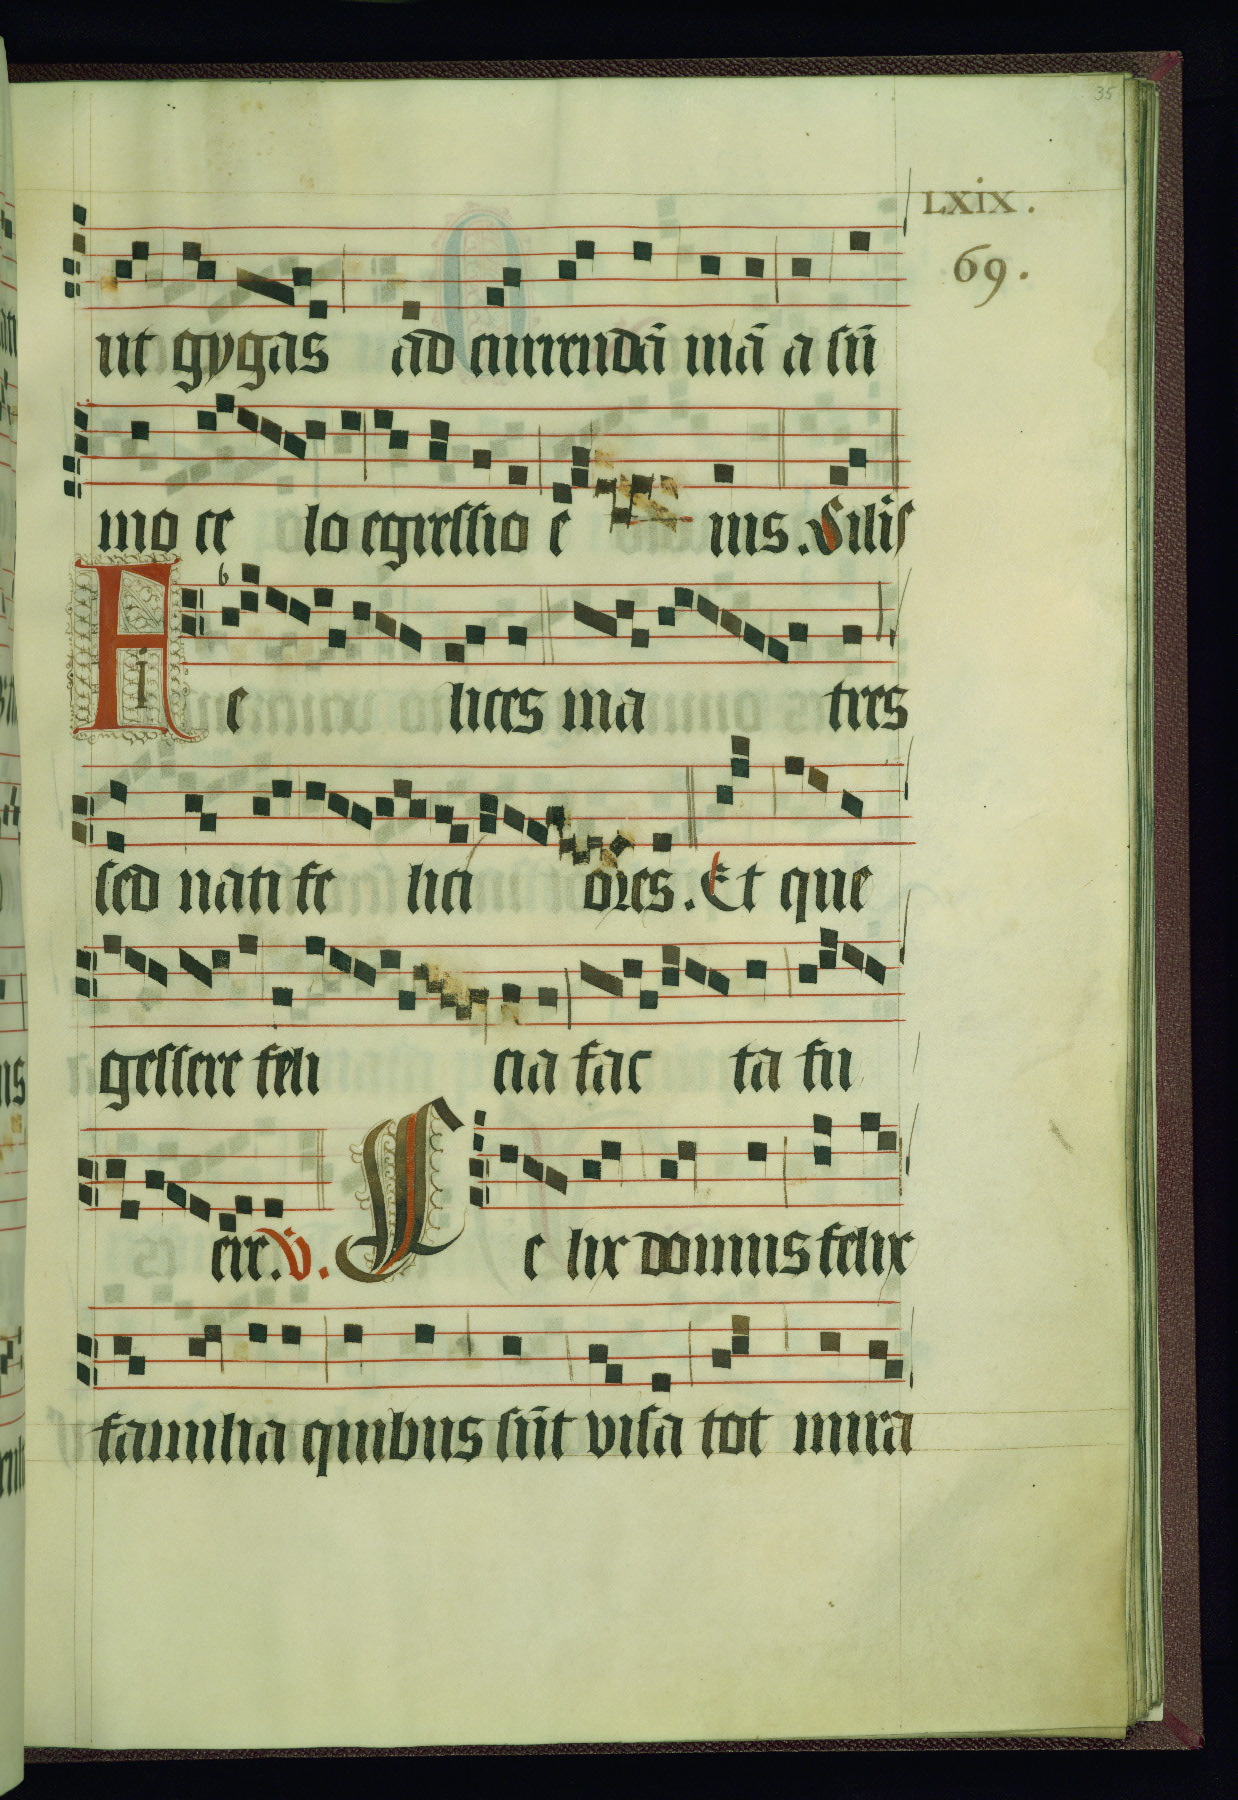 35
LXIX.
69.
ut gygas ad currendā uiā a sū
mo ce lo egressio e ius. Similis
Fi e lices ma tres
sed nati fe lici ores. Et que
gessere feli cia fac ta fu
eir. V. Fe lix domus felix
familia quibus sūt visa tot mira